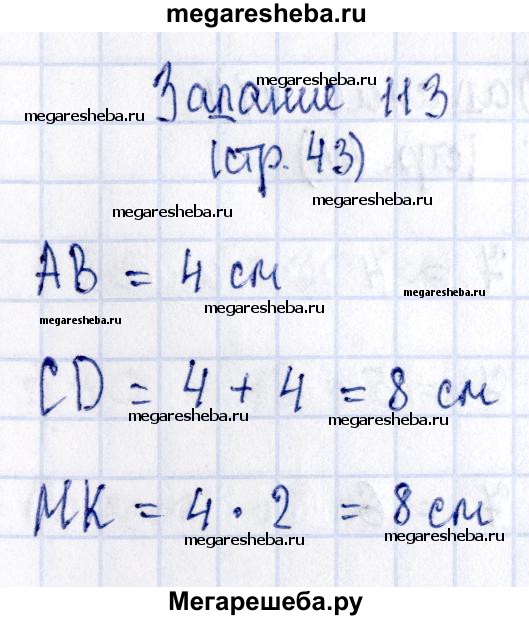 megaresheba.ru
megaresheba.ru
Задание 113
megaresheba.ru
(стр. 43)
megaresheba.ru
megaresheba.ru
AB = 4 см
megaresheba.ru
megaresheba.ru
megaresheba.ru
CD = 4 + 4 = 8 см
megaresheba.ru
megaresheba.ru
MK = 4 · 2 = 8 см
megaresheba.ru
megaresheba.ru
Мегарешеба.ру